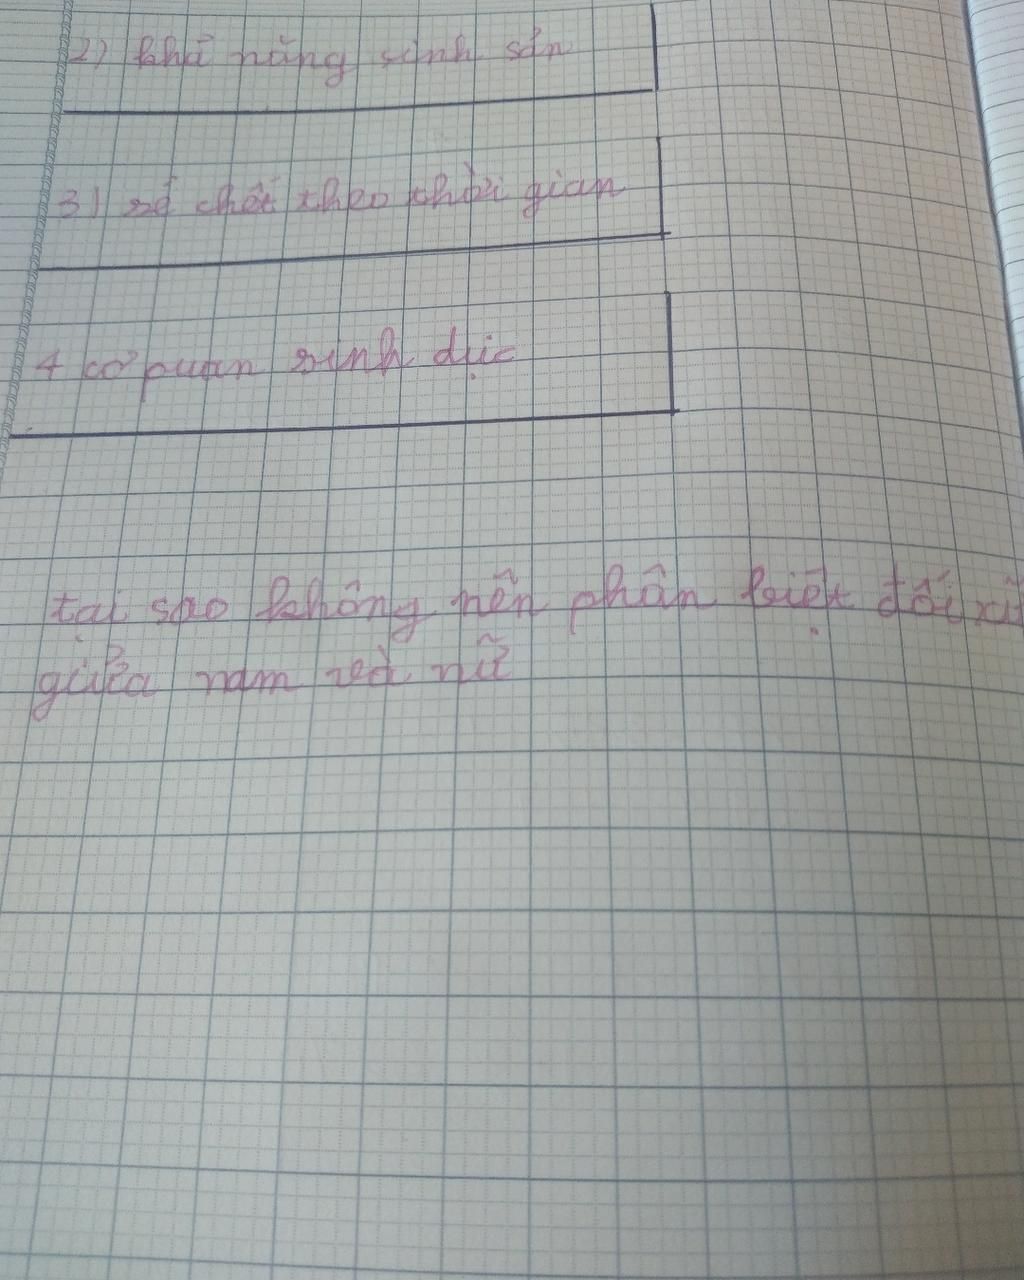 2) khả năng sinh sản
3) sẽ chết theo thời gian
4 cơ quan sinh dục
tại sao không nên phân biệt đối xử
giữa nam và nữ